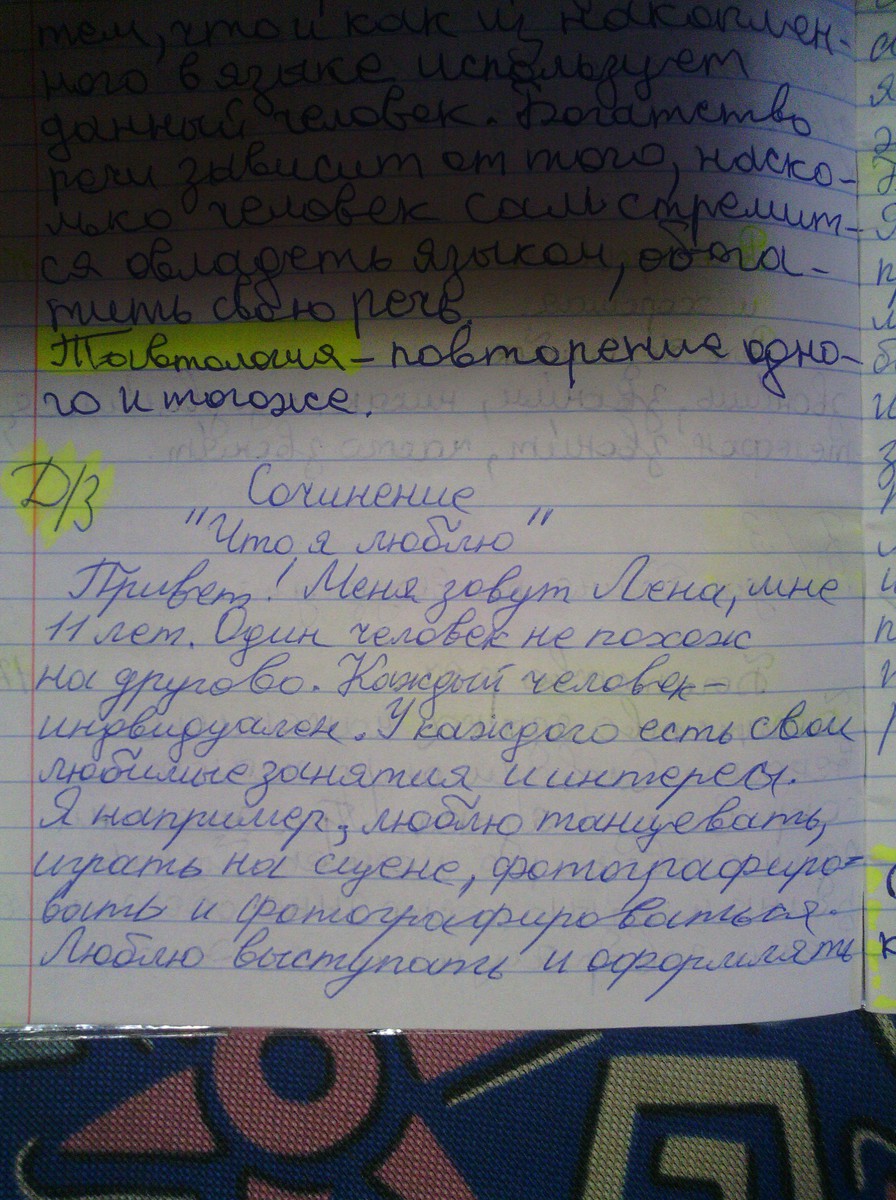 тем, что и как из накоплен-
ного в языке использует
данный человек. Богатство
речи зависит от того, наско-
лько человек сам стремит-
ся овладеть языком, обога-
тить свою речь.
Тавтология – повторение одно-
го и тогоже.
Д/З Сочинение
"Что я люблю"
Привет! Меня зовут Лена, мне
11 лет. Один человек не похож
на другово. Каждый человек –
индвидуален. У каждого есть свои
любимые занятия и интересы.
Я например, люблю танцевать,
играть на сцене, фотографиро=
вать и фотографироваться.
Люблю выступать и оформлять